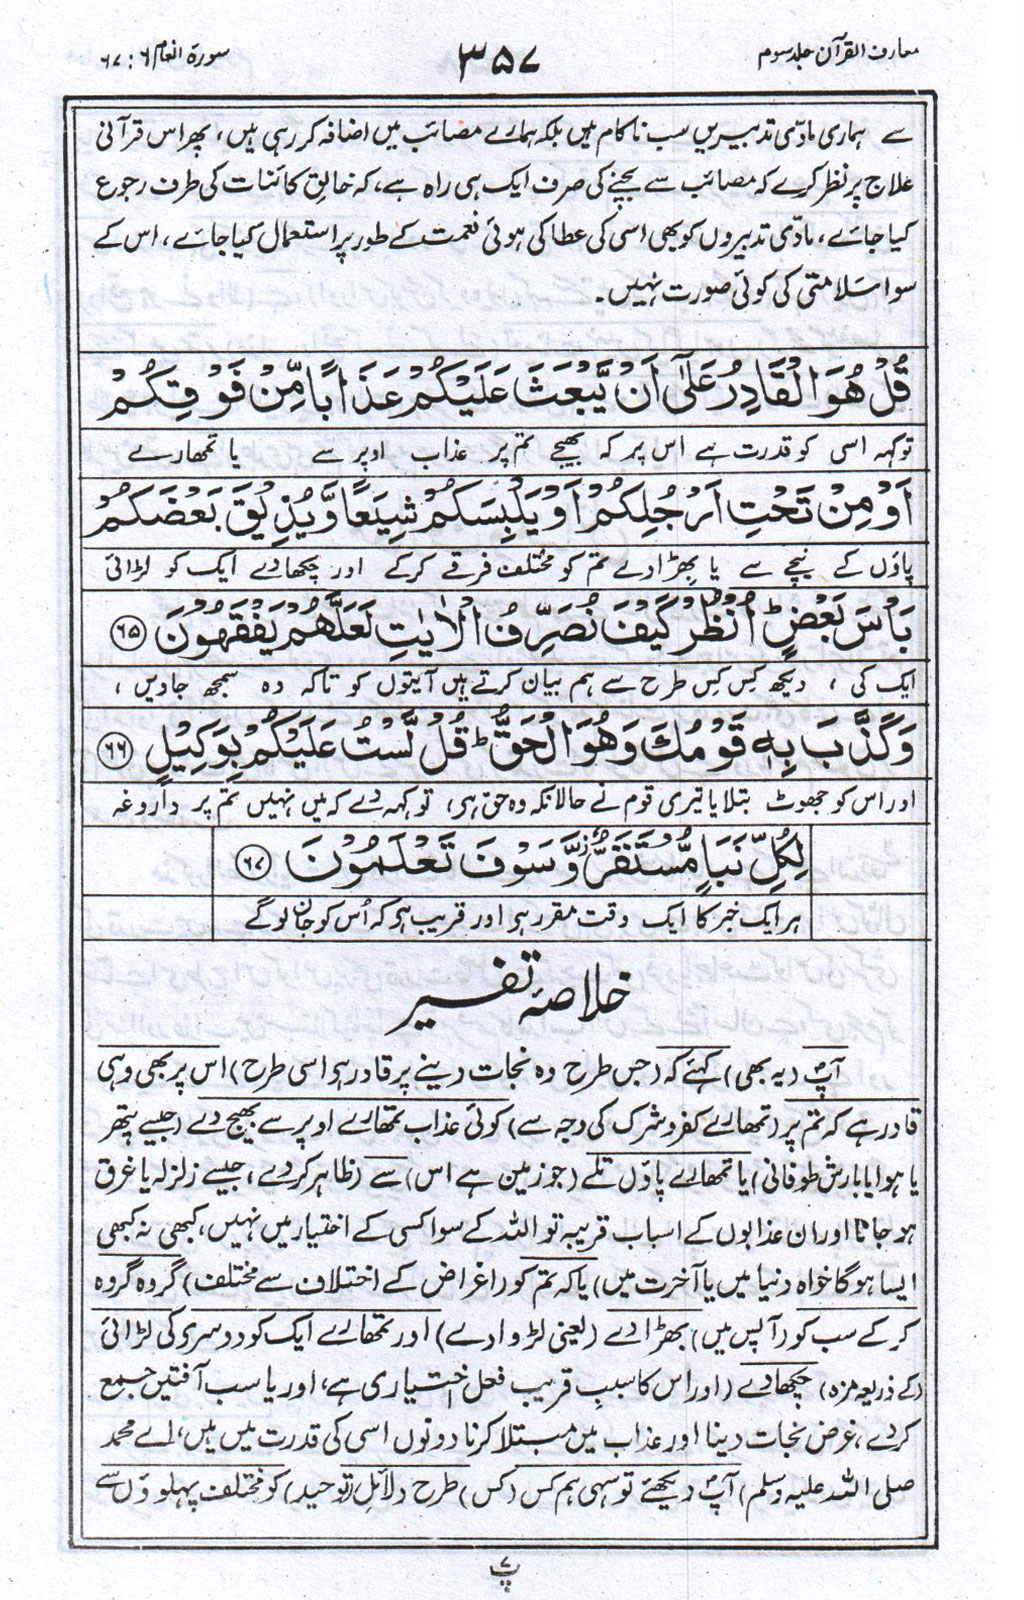 معارف القرآن جلد سوم
۳۵۷
سورۃ انعام ۶ : ۶۷
سے ہماری مادّی تدبیریں سب ناکام ہیں بلکہ ہمارے مصائب میں اضافہ کر رہی ہیں، پھر اس قرآنی
علاج پر نظر کرے کہ مصائب سے بچنے کی صرف ایک ہی راہ ہے، کہ خالقِ کائنات کی طرف رجوع
کیا جائے، مادّی تدبیروں کو بھی اسی کی عطا کی ہوئی نعمت کے طور پر استعمال کیا جائے، اس کے
سوا سلامتی کی کوئی صورت نہیں۔
قُلْ هُوَ الْقَادِرُ عَلٰٓى اَنْ يَّبْعَثَ عَلَيْكُمْ عَذَابًا مِّنْ فَوْقِكُمْ
تو کہہ اسی کو قدرت ہے اس پر کہ بھیجے تم پر عذاب اوپر سے یا تمہارے
اَوْ مِنْ تَحْتِ اَرْجُلِكُمْ اَوْ يَلْبِسَكُمْ شِيَعًا وَّيُذِيْقَ بَعْضَكُمْ
پاؤں کے نیچے سے یا بِھڑا دے تم کو مختلف فرقے کرکے اور چکھا دے ایک کو لڑائی
بَاْسَ بَعْضٍ ؕ اُنْظُرْ كَيْفَ نُصَرِّفُ الْاٰيٰتِ لَعَلَّهُمْ يَفْقَهُوْنَ ﴿۶۵﴾
ایک کی ، دیکھ کِس کِس طرح سے ہم بیان کرتے ہیں آیتوں کو تاکہ وہ سمجھ جاویں ،
وَكَذَّبَ بِهٖ قَوْمُكَ وَهُوَ الْحَقُّ ؕ قُلْ لَّسْتُ عَلَيْكُمْ بِوَكِيْلٍ ﴿۶۶﴾
اور اس کو جھوٹ بتلایا تیری قوم نے حالانکہ وہ حق ہی، تو کہہ دے کہ میں نہیں تم پر داروغہ
لِكُلِّ نَبَاٍ مُّسْتَقَرٌّ ز وَّسَوْفَ تَعْلَمُوْنَ ﴿۶۷﴾
ہر ایک خبر کا ایک وقت مقرر ہی اور قریب ہی کہ اُس کو جان لو گے
خلاصۂ تفسیر
آپؐ (یہ بھی) کہئے کہ (جس طرح وہ نجات دینے پر قادر ہی اسی طرح) اس پر بھی وہی
قادر ہے کہ تم پر (تمہارے کفر و شرک کی وجہ سے) کوئی عذاب تمہارے اوپر سے بھیج دے (جیسے پتھر
یا ہوا یا بارش طوفانی) یا تمہارے پاؤں تلے (جو زمین ہے اس) سے (ظاہر کر دے، جیسے زلزلہ یا غرق
ہو جانا اور ان عذابوں کے اسباب قریبہ تو اللہ کے سوا کسی کے اختیار میں نہیں، کبھی نہ کبھی
ایسا ہوگا خواہ دنیا میں یا آخرت میں) یا کہ تم کو (اغراض کے اختلاف سے مختلف) گروہ گروہ
کر کے سب کو (آپس میں) بھڑا دے (یعنی لڑوا دے) اور تمہارے ایک کو دوسری کی لڑائی
(کے ذریعہ مزہ) چکھا دے (اور اس کا سبب قریب فعل اختیاری ہے، اور یا سب آفتیں جمع
کر دے، غرض نجات دینا اور عذاب میں مبتلا کرنا دونوں اسی کی قدرت میں ہیں، اے محمد
صلی اللہ علیہ وسلم) آپؐ دیکھئے تو سہی ہم کس (کس) طرح دلائل (توحید) کو مختلف پہلوؤں سے